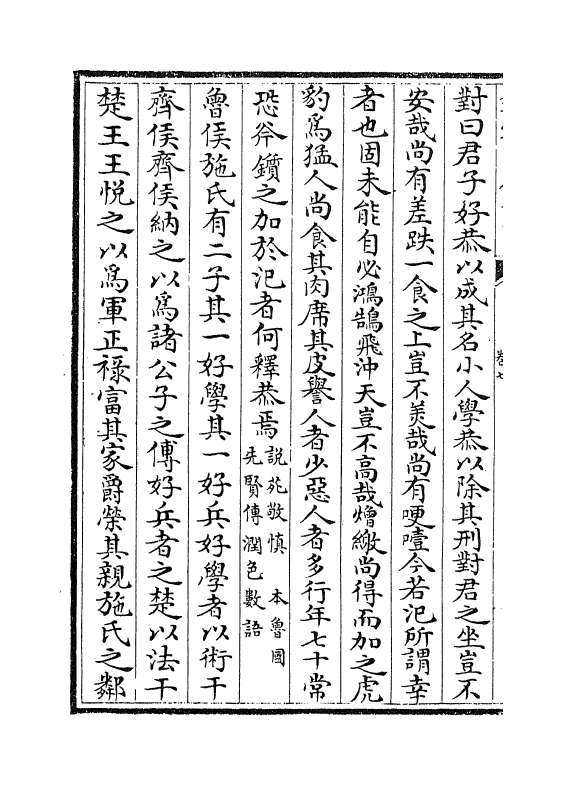 對曰君子好恭以成其名小人學恭以除其刑對君之坐豈不
安哉尚有差跌一食之上豈不羙哉尚有哽噎今若氾所謂幸
者也固未能自必鴻鵠飛沖天豈不高哉矰繳尚得而加之虎
豹為猛人尚食其肉席其皮譽人者少惡人者多行年七十常
恐斧鑕之加於氾者何釋恭焉
說苑敬慎　本魯國
先賢傳潤色數語
魯侯施氏有二子其一好學其一好兵好學者以術干
齊侯齊侯納之以為諸公子之傅好兵者之楚以法干
楚王王悅之以為軍正祿富其家爵榮其親施氏之鄰
卷七